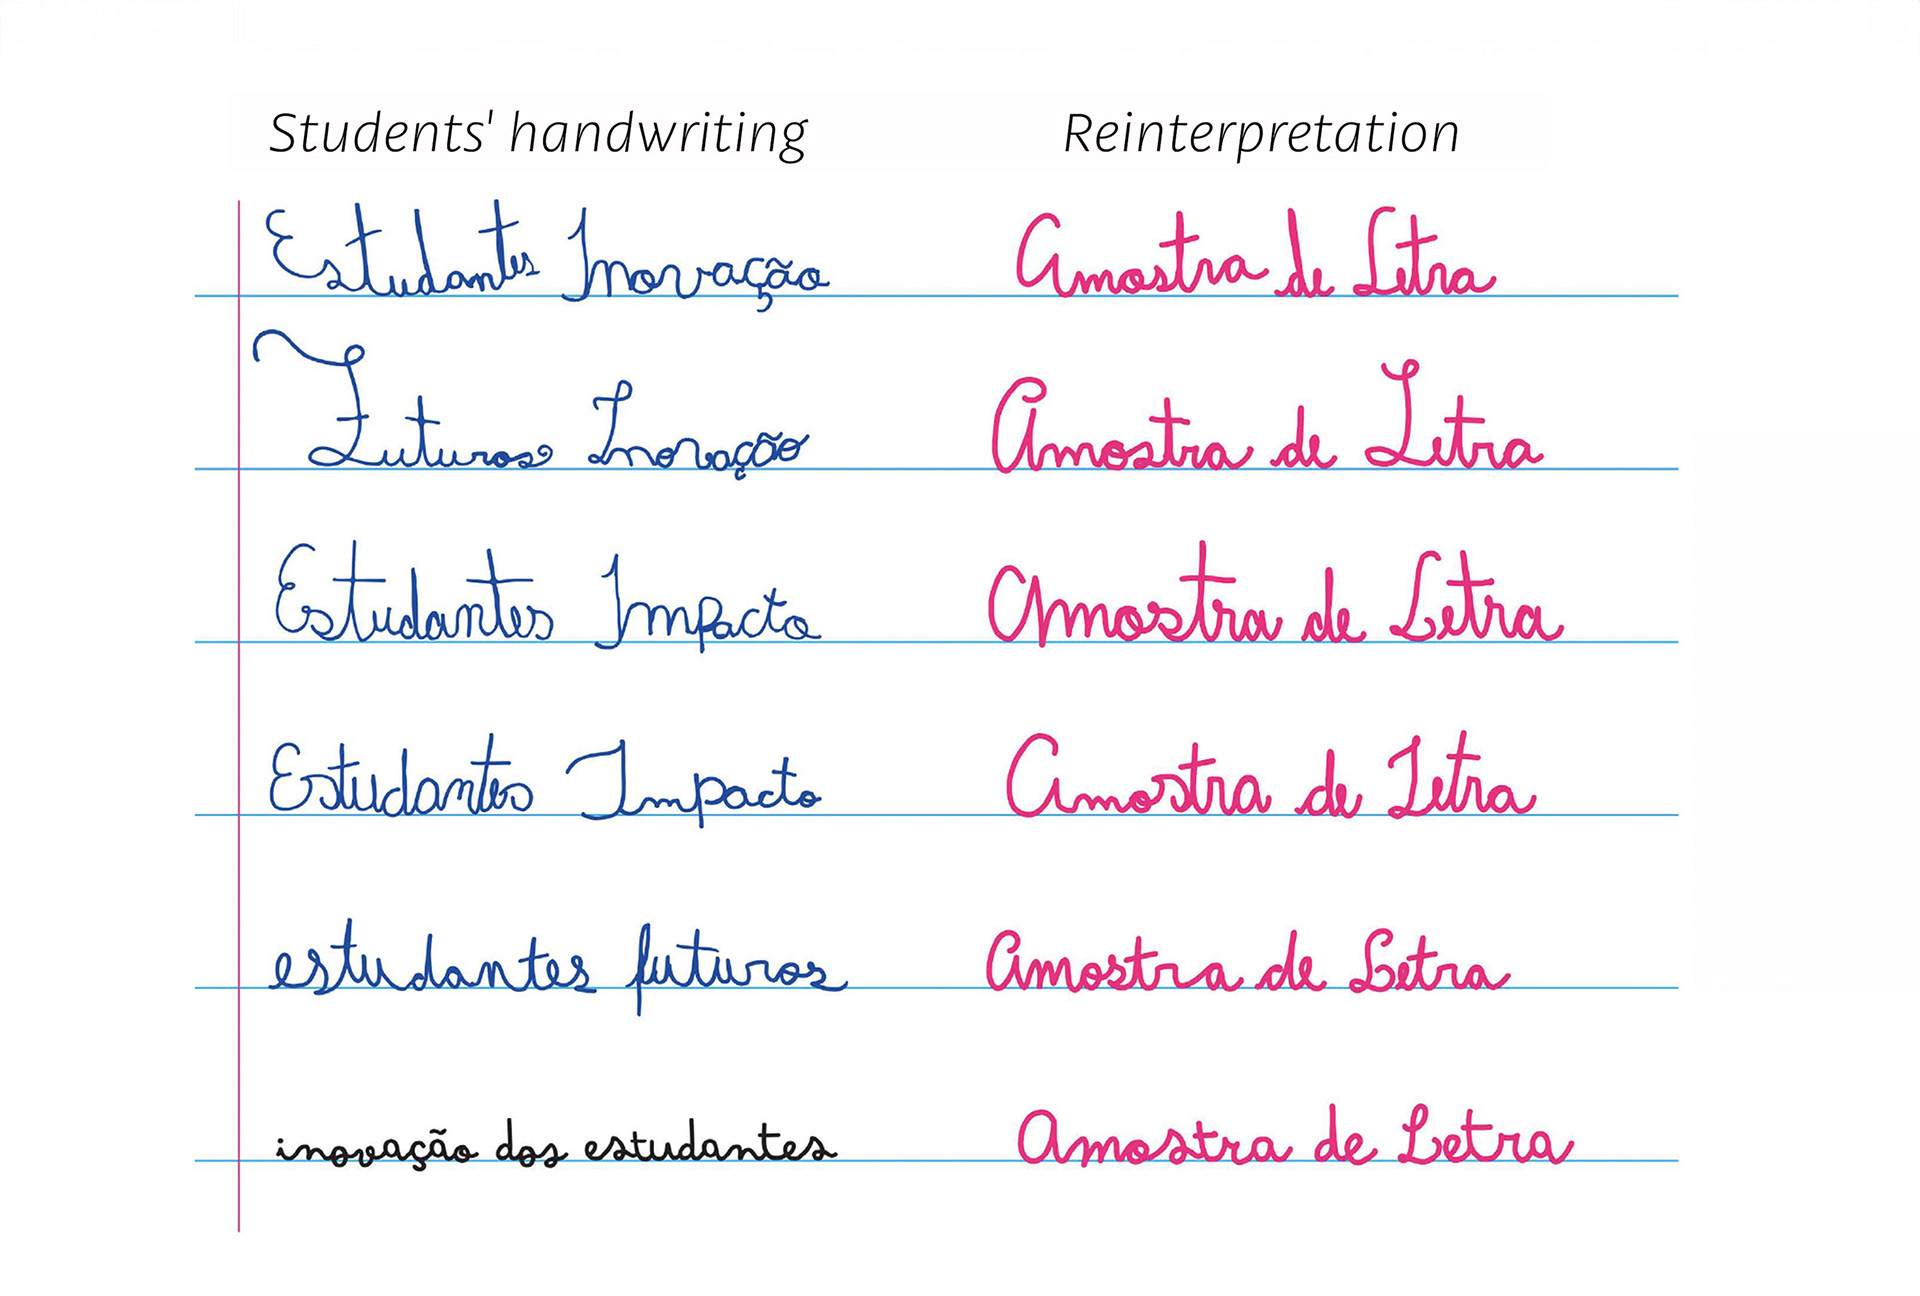 Students' handwriting Reinterpretation
Estudantes Inovação Amostra de Letra
Futuros Inovação Amostra de Letra
Estudantes Impacto Amostra de Letra
Estudantes Impacto Amostra de Letra
estudantes futuros Amostra de Letra
inovação dos estudantes Amostra de Letra